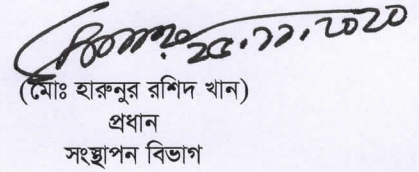 ২৫.১১.২০২০
(মোঃ হারুনুর রশিদ খান)
প্রধান
সংস্থাপন বিভাগ